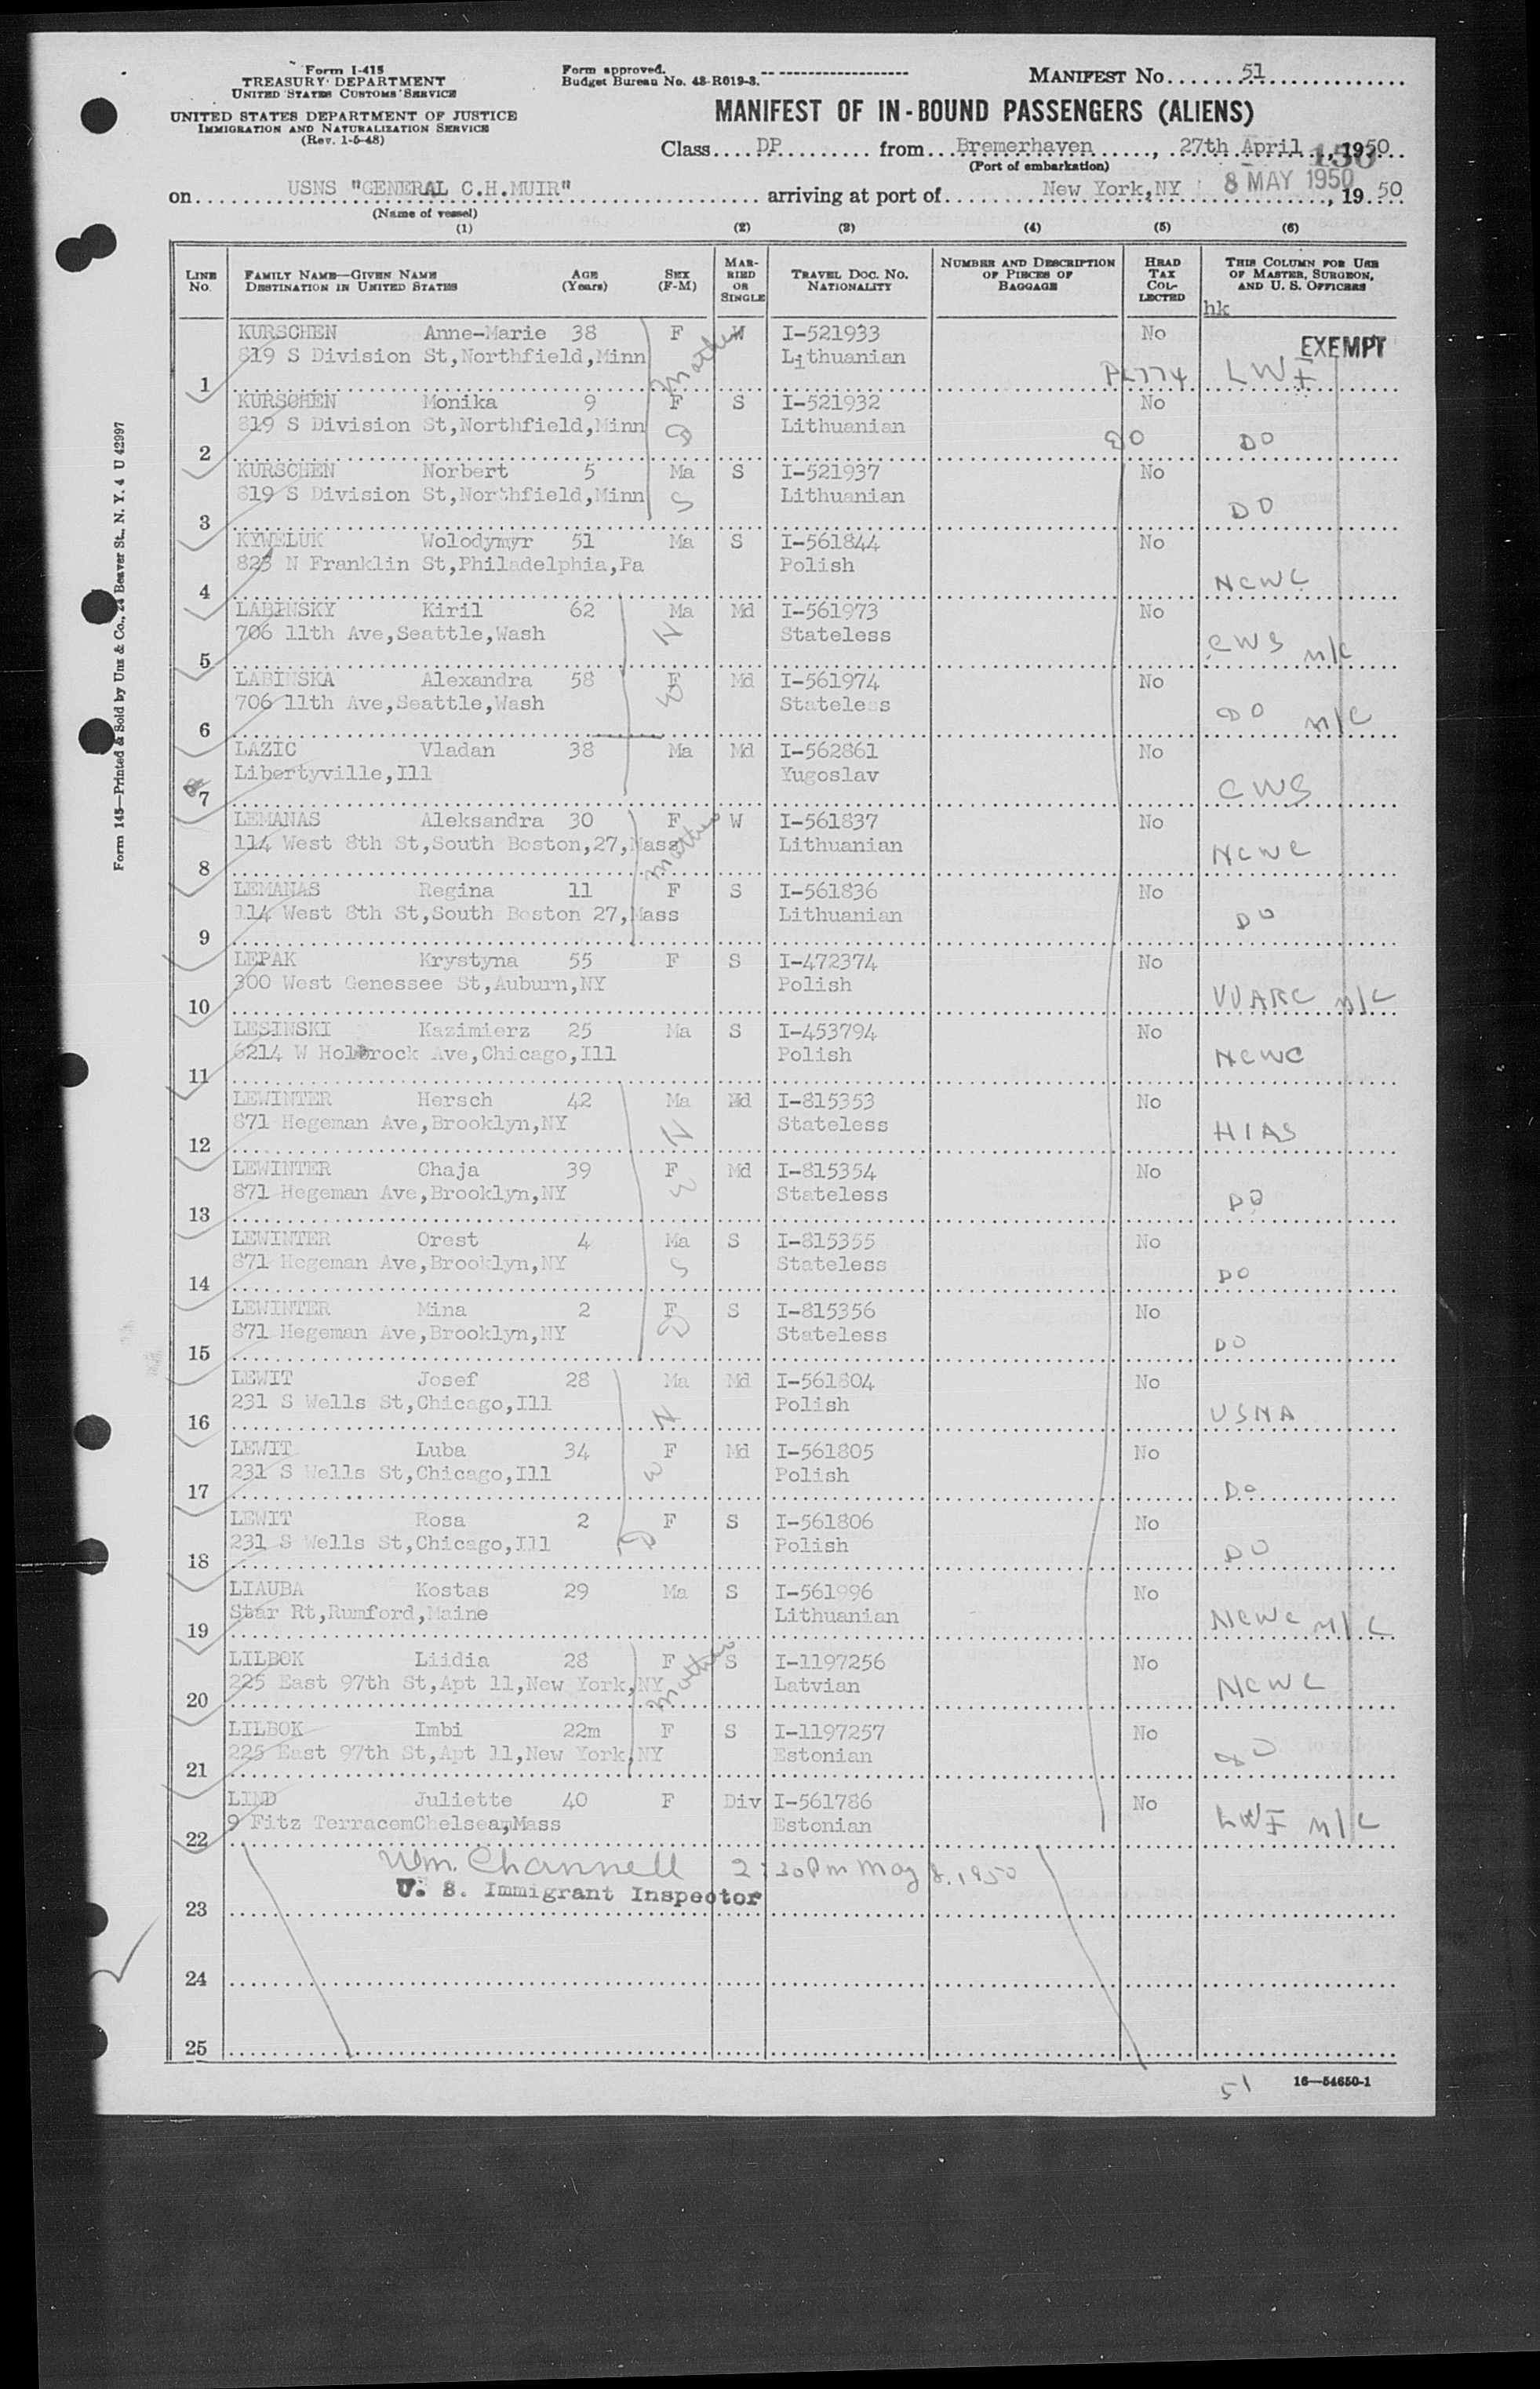 Form I-415
TREASURY DEPARTMENT
UNITED STATES CUSTOMS SERVICE
UNITED STATES DEPARTMENT OF JUSTICE
IMMIGRATION AND NATURALIZATION SERVICE
(Rev. 1-5-48)
Form approved.
Budget Bureau No. 43-R019-3.
MANIFEST No. 51
MANIFEST OF IN-BOUND PASSENGERS (ALIENS)
Class DP from Bremerhaven, 27th April, 1950
(Port of embarkation)
on USNS "GENERAL C.H.MUIR" arriving at port of New York,NY 8 MAY 1950, 19 50
(Name of vessel)
(1) (2) (3) (4) (5) (6)
LINE No. FAMILY NAME—GIVEN NAME DESTINATION IN UNITED STATES AGE (Years) SEX (F-M) MARRIED OR SINGLE TRAVEL DOC. NO. NATIONALITY NUMBER AND DESCRIPTION OF PIECES OF BAGGAGE HEAD TAX COLLECTED THIS COLUMN FOR USE OF MASTER, SURGEON, AND U. S. OFFICERS
hk
KURSCHEN Anne-Marie 38 F W I-521933 No EXEMPT
1 819 S Division St,Northfield,Minn Mother Lithuanian PL774 LWF
KURSCHEN Monika 9 F S I-521932 No
2 819 S Division St,Northfield,Minn D Lithuanian DO DO
KURSCHEN Norbert 5 Ma S I-521937 No
3 819 S Division St,Northfield,Minn S Lithuanian DO
KYWELUK Wolodymyr 51 Ma S I-561844 No
4 823 N Franklin St,Philadelphia,Pa Polish NCWC
LABINSKY Kiril 62 Ma Md I-561973 No
5 706 11th Ave,Seattle,Wash H Stateless CWS N/C
LABINSKA Alexandra 58 F Md I-561974 No
6 706 11th Ave,Seattle,Wash W Stateless DO N/C
LAZIC Vladan 38 Ma Md I-562861 No
7 Libertyville,Ill Yugoslav CWS
LEMANAS Aleksandra 30 F W I-561837 No
8 114 West 8th St,South Boston,27,Mass Mother Lithuanian NCWC
LEMANAS Regina 11 F S I-561836 No
9 114 West 8th St,South Boston 27,Mass Lithuanian DO
LEPAK Krystyna 55 F S I-472374 No
10 300 West Genessee St,Auburn,NY Polish WARC N/C
LESINSKI Kazimierz 25 Ma S I-453794 No
11 6214 W Holbrock Ave,Chicago,Ill Polish NCWC
LEWINTER Hersch 42 Ma Md I-815353 No
12 871 Hegeman Ave,Brooklyn,NY H Stateless HIAS
LEWINTER Chaja 39 F Md I-815354 No
13 871 Hegeman Ave,Brooklyn,NY W Stateless DO
LEWINTER Orest 4 Ma S I-815355 No
14 871 Hegeman Ave,Brooklyn,NY S Stateless DO
LEWINTER Mina 2 F S I-815356 No
15 871 Hegeman Ave,Brooklyn,NY D Stateless DO
LEWIT Josef 28 Ma Md I-561804 No
16 231 S Wells St,Chicago,Ill H Polish USNA
LEWIT Luba 34 F Md I-561805 No
17 231 S Wells St,Chicago,Ill W Polish DO
LEWIT Rosa 2 F S I-561806 No
18 231 S Wells St,Chicago,Ill D Polish DO
LIAUBA Kostas 29 Ma S I-561996 No
19 Star Rt,Rumford,Maine Lithuanian NCWC N/C
LILBOK Liidia 28 F S I-1197256 No
20 225 East 97th St,Apt 11,New York,NY Mother Latvian NCWC
LILBOK Imbi 22m F S I-1197257 No
21 225 East 97th St,Apt 11,New York,NY Estonian DO
LIND Juliette 40 F Div I-561786 No
22 9 Fitz TerracemChelsea,Mass Estonian LWF N/C
Wm. Channell 2:30 Pm May 8, 1950
U. S. Immigrant Inspector
23
24
25
51 16—54650-1
Form 145—Printed & Sold by Unz & Co., 24 Beaver St., N. Y. 4 U 42997